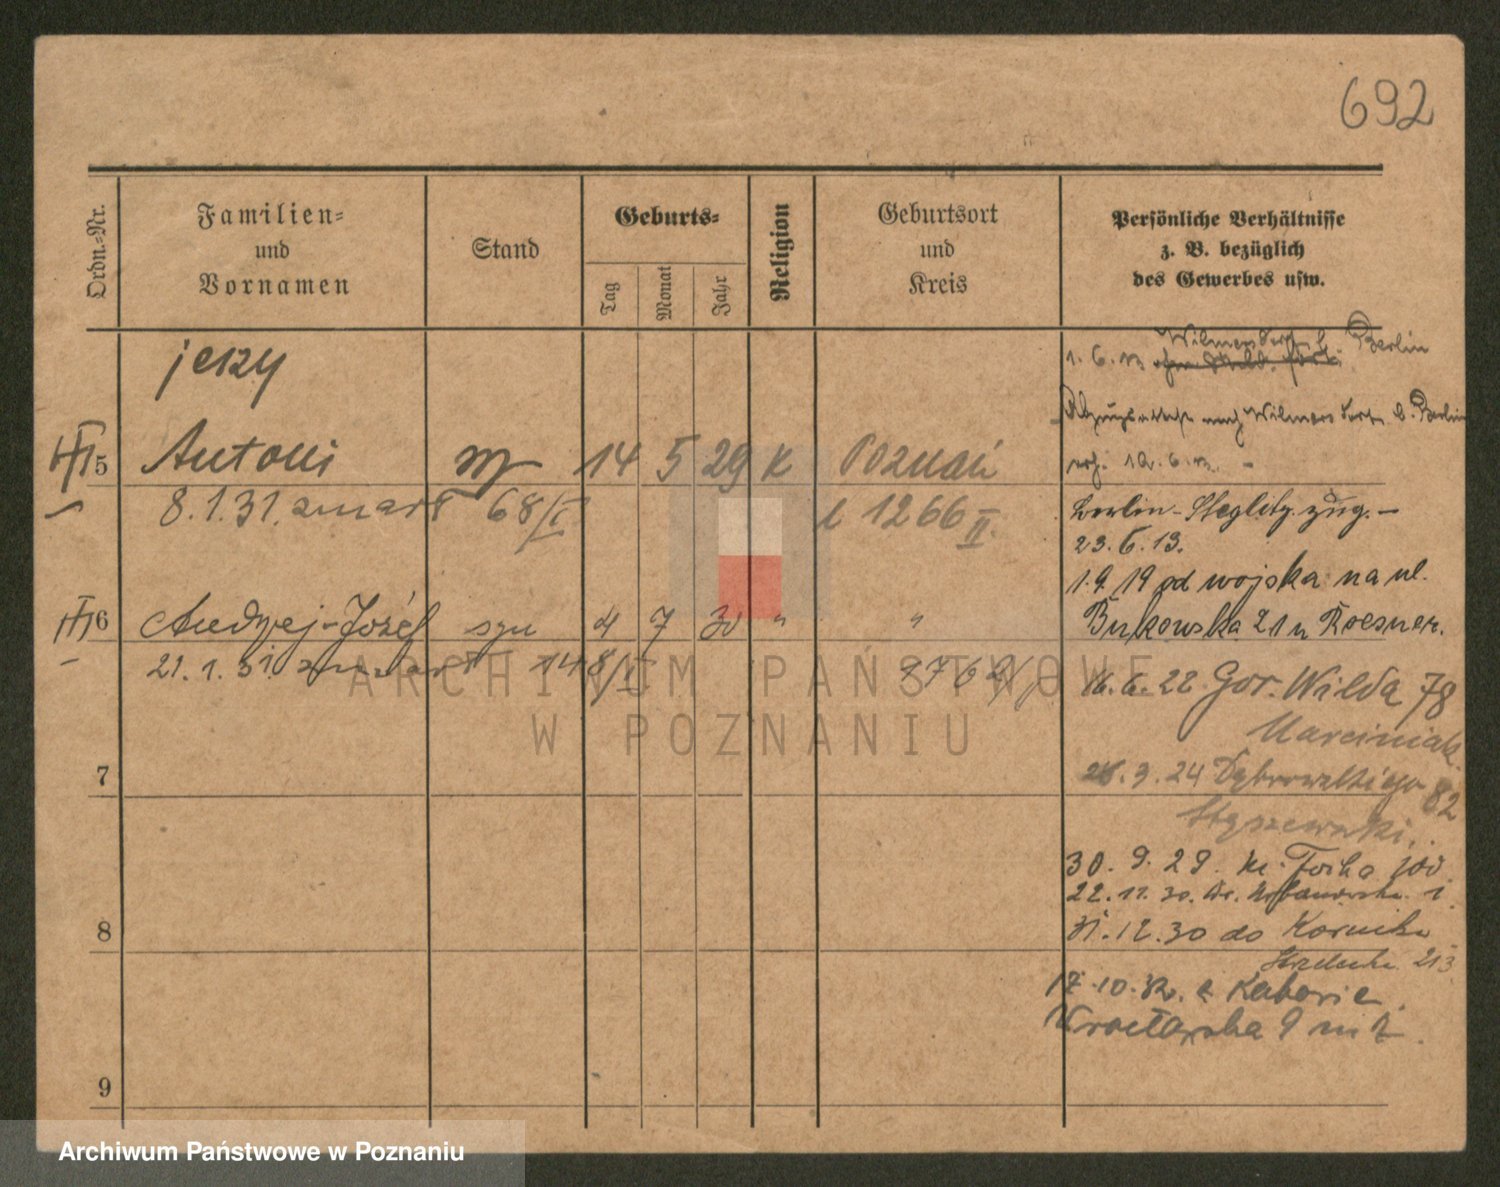 692
Ordn.-Nr.
Familien-
und
Vornamen
Stand
Geburts-
Tag
Monat
Jahr
Religion
Geburtsort
und
Kreis
Persönliche Verhältnisse
z. B. bezüglich
des Gewerbes usw.
jerzy
5 Antoni 14 5 29 k Poznań
8.1.31. zmarł 68/I 1266 II.
6 Andrzej-Józef syn 4 7 30 " "
21.1.31. zmarł 148/I
7
8
9
Wilmersdorf b. Berlin
1. 6.
Wilmersdorf b. Berlin
Berlin-Steglitz zug. -
23. 6. 13.
1.9.19 od wojska na ul.
Bukowska 21 u Roesner.
16.6.22 Gor. Wilda 78
Marciniak.
26.3.24 Dąbrowskiego 82
Styszewski.
30. 9. 29.
22. 11. 30.
31.12.30 do Kornika
213
17.10.32. z
Wrocławska 9 m
ARCHIWUM PAŃSTWOWE
W POZNANIU
Archiwum Państwowe w Poznaniu